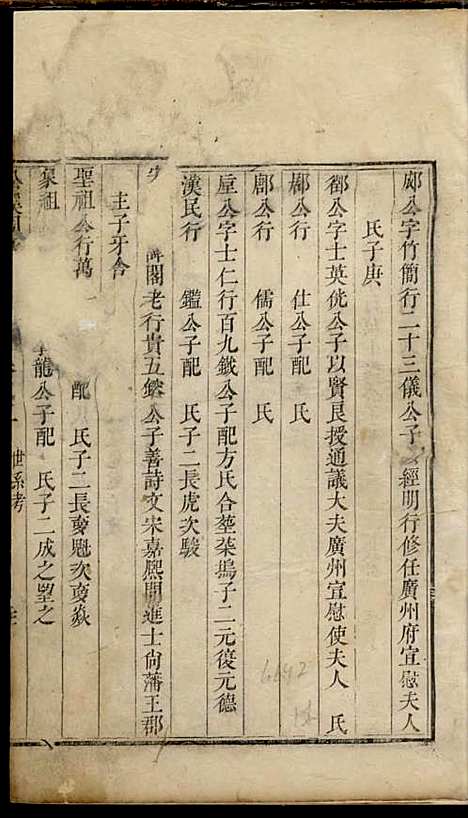 鄺公字竹簡行二十三儀公子 經明行修任廣州府宣慰夫人
氏子庚
公字士英侊公子以賢良授通議大夫廣州宣慰使夫人 氏
公行 仕公子配 氏
鄘公行 儒公子配 氏
公字士仁行百九 公子配方氏合塟 塢子二元復元德
漢民行 鑑公子配 氏子二長虎次駿
閣老行貴五 公子善詩文宋嘉熙間進士尙藩王郡
主子牙合
聖祖公行萬 配 氏子二長 次
象祖 龍公子配 氏子二成之望之
世系考
6692